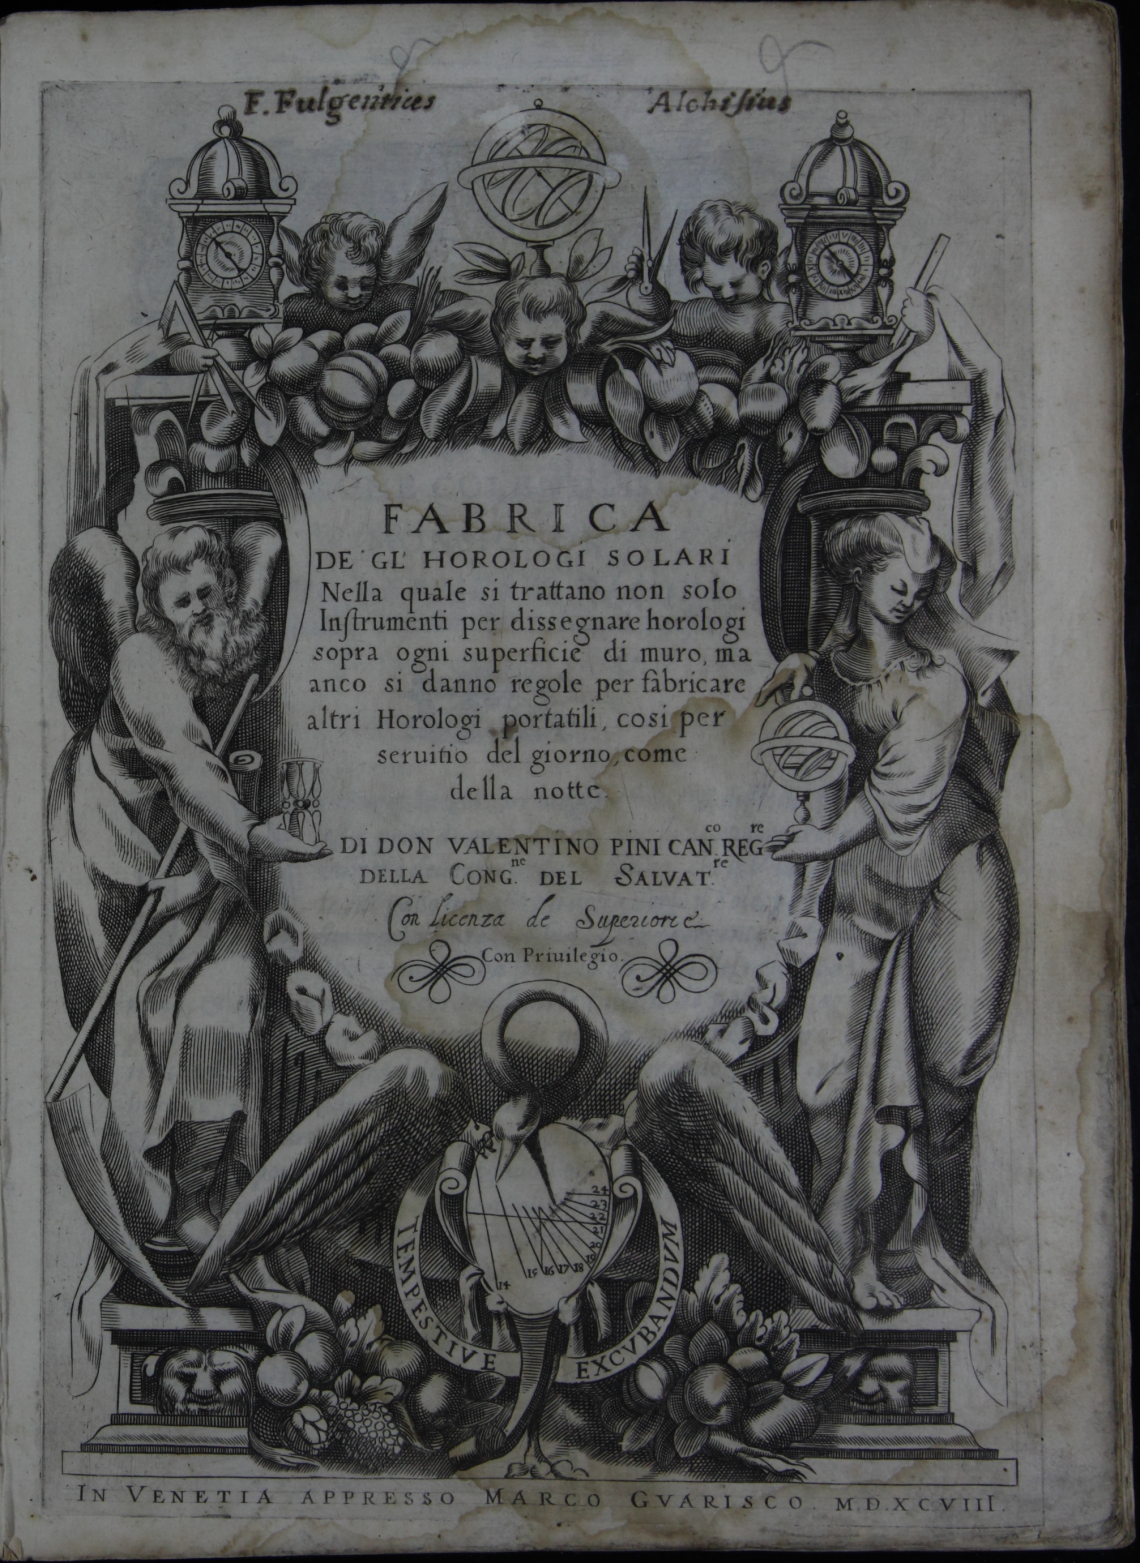 F. Fulgentius Alohisius
FABRICA
DE GL' HOROLOGI SOLARI
Nella quale si trattano non solo
Inſtrumenti per dissegnare horologi
sopra ogni superficie di muro, ma
anco si danno regole per fabricare
altri Horologi portatili, cosi per
seruitio del giorno, come
della notte
DI DON VALENTINO PINI CAN.co REG.re
DELLA CONG.ne DEL SALVAT.re
Con licenza de Superiori
Con Priuilegio.
24
14 15 16 17 18
TEMPESTIVE EXCVBANDVM
IN VENETIA APPRESSO MARCO GVARISCO M.D.XCVIII.